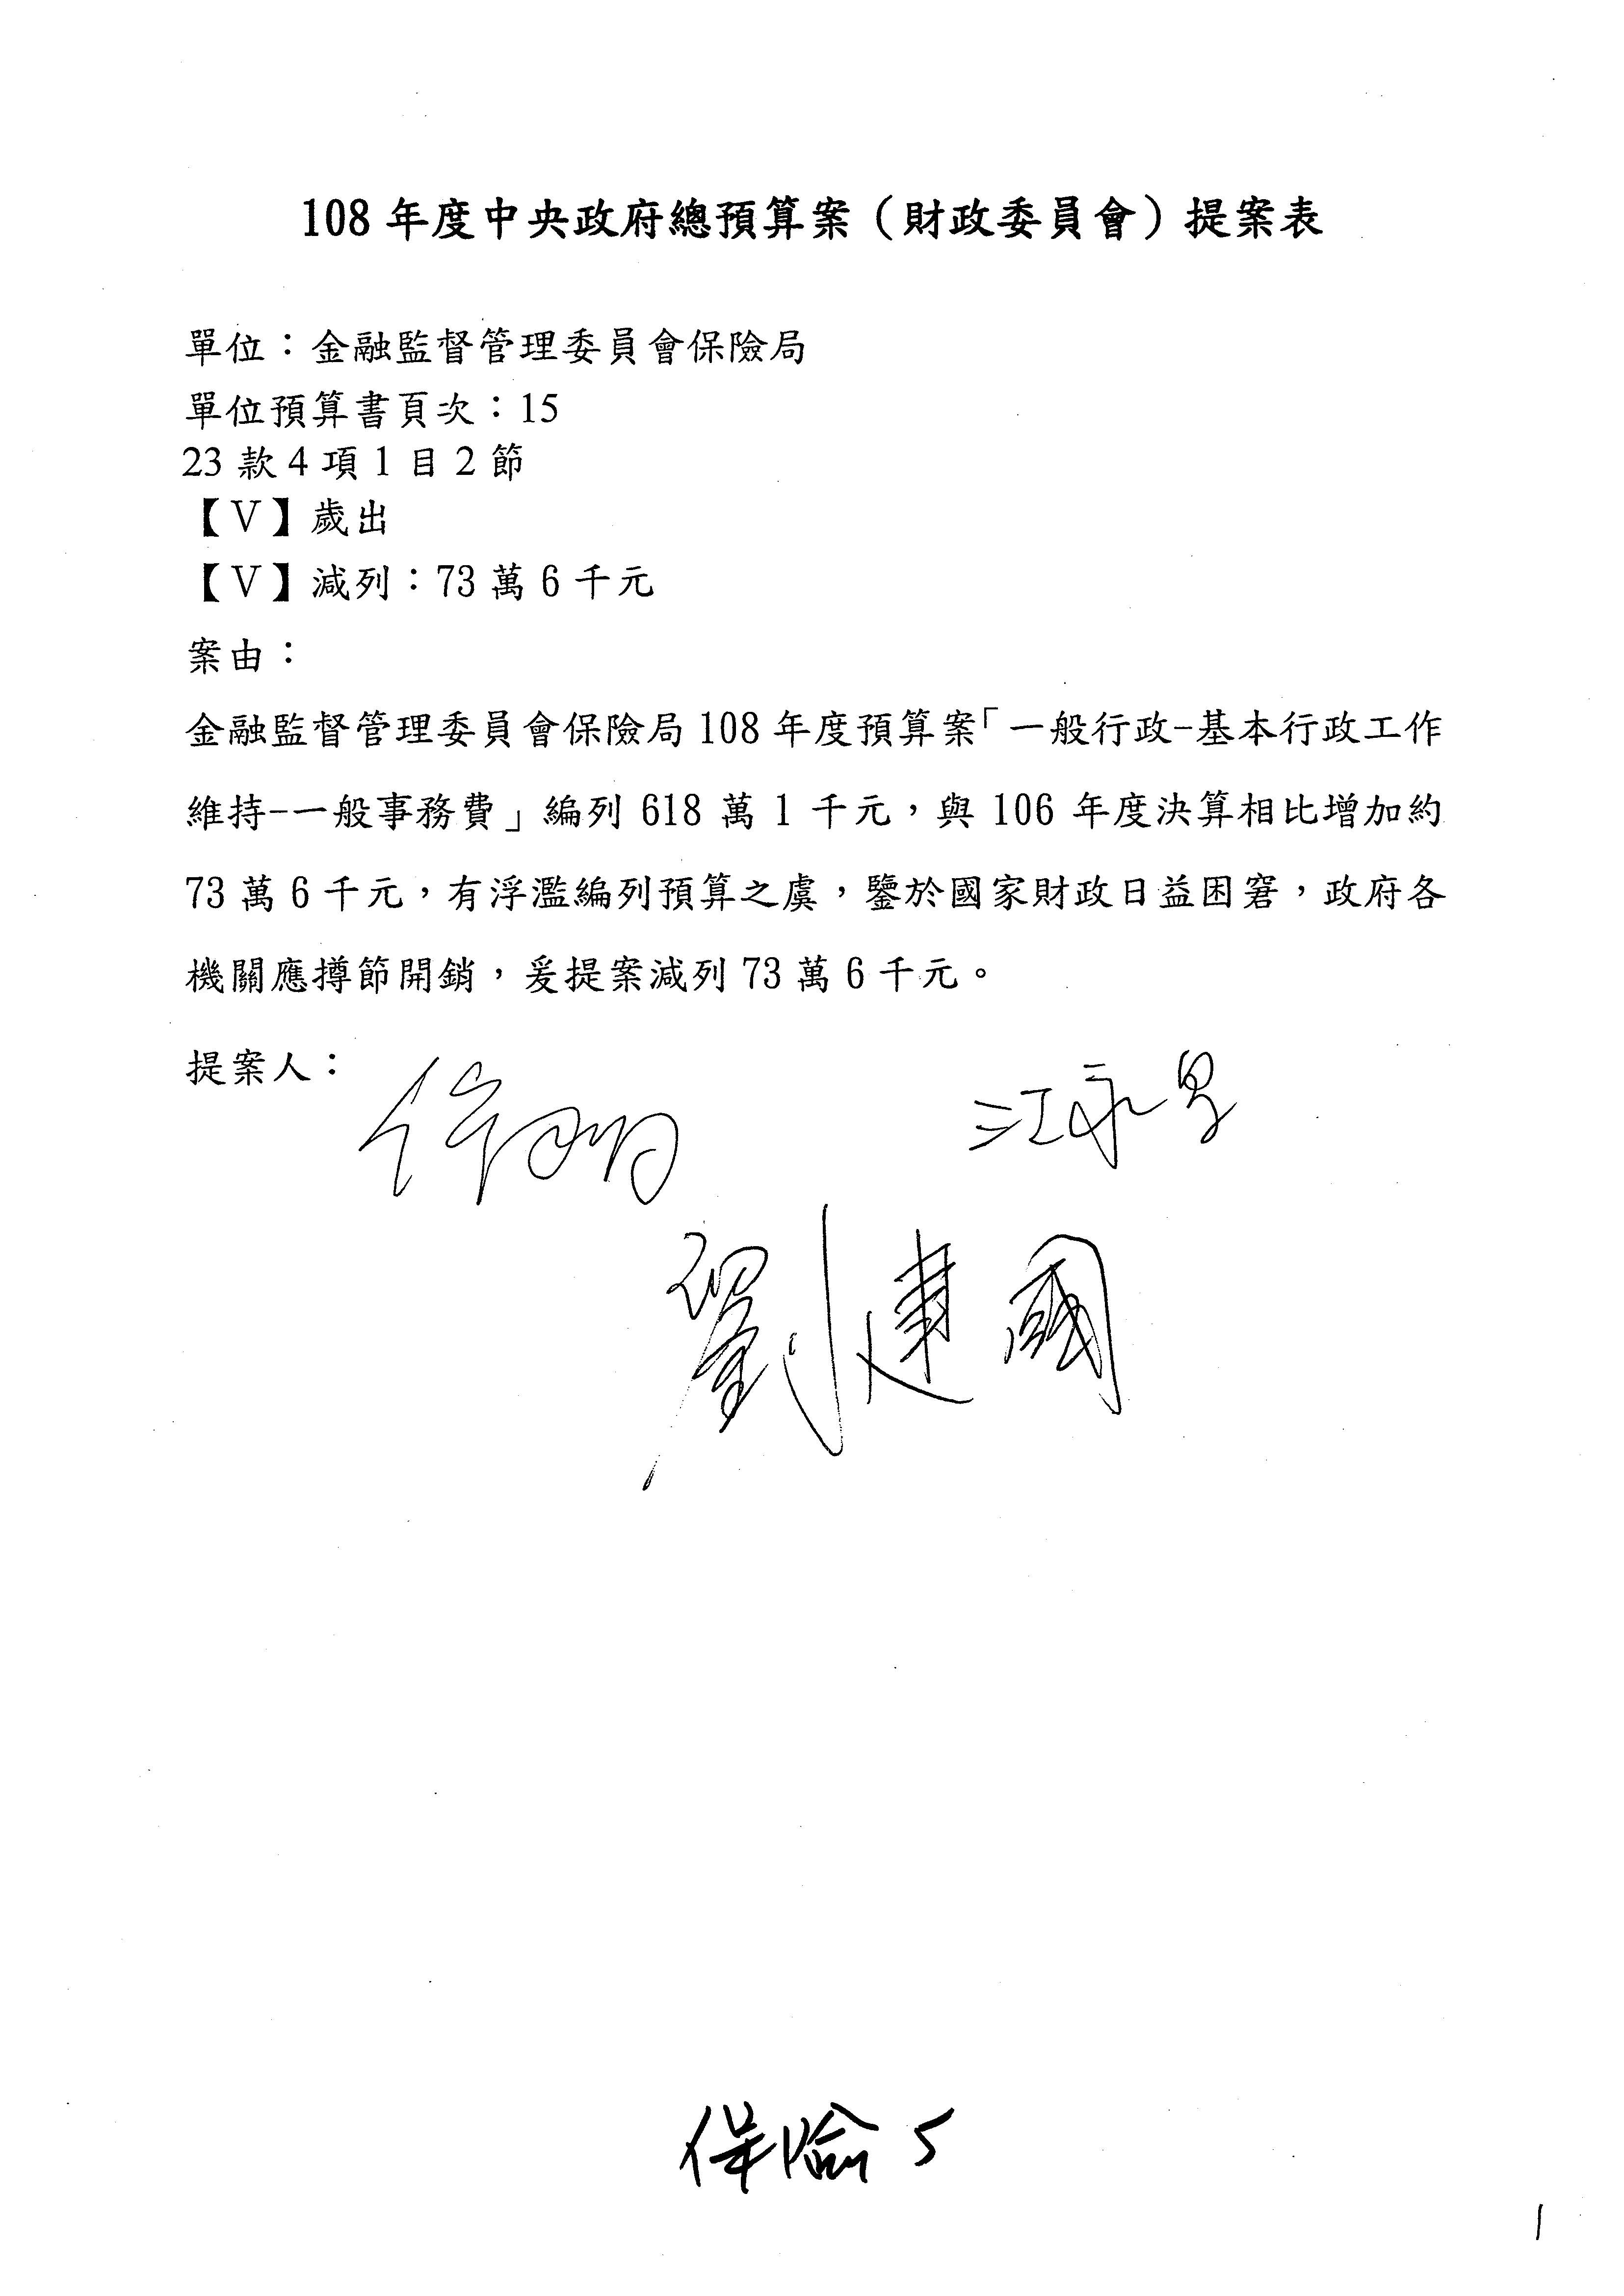 108 年度中央政府總預算案（財政委員會）提案表
單位：金融監督管理委員會保險局
單位預算書頁次：15
23 款 4 項 1 目 2 節
【V】歲出
【V】減列：73 萬 6 千元
案由：
金融監督管理委員會保險局 108 年度預算案「一般行政-基本行政工作
維持-一般事務費」編列 618 萬 1 千元，與 106 年度決算相比增加約
73 萬 6 千元，有浮濫編列預算之虞，鑒於國家財政日益困窘，政府各
機關應撙節開銷，爰提案減列 73 萬 6 千元。
提案人：
江永昌
劉建國
保險 5
1